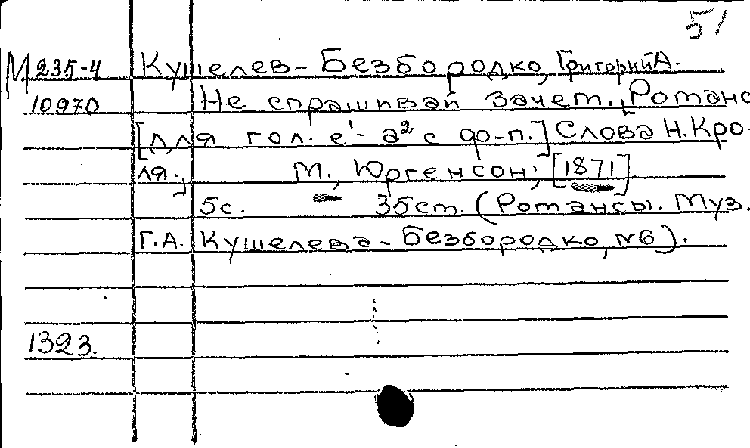 51
М 235-4 Кушелев-Безбородко, Григорий А.
10970 Не спрашивай зачем. [Романс
[для гол. e¹- a² с ф-п.] Слова Н. Кро-
ля. М., Юргенсон, [1871]
5с. 35см. (Романсы. Муз.
Г.А. Кушелева-Безбородко, №6).
1323.